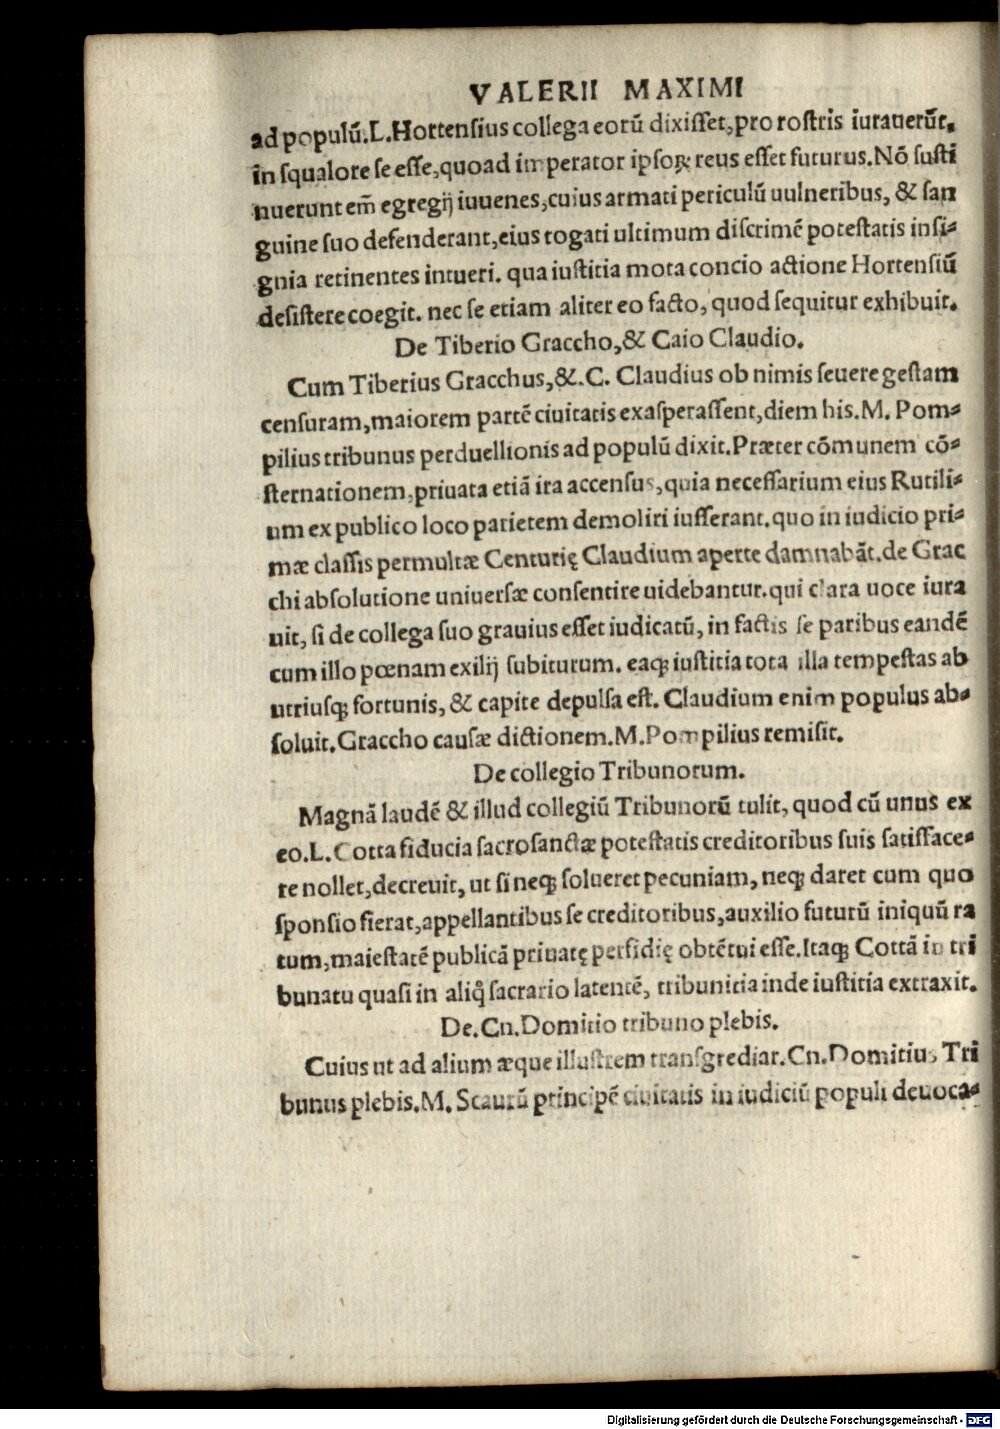 VALERII MAXIMI
ad populū.L.Hortensius collega eorū dixisset,pro rostris iurauerūt,
in squalore se esse,quoad imperator ipsoꝝ reus esset futurus.Nō susti
nuerunt em̄ egregij iuuenes,cuius armati periculū uulneribus, & san
guine suo defenderant,eius togati ultimum discrimē potestatis insi-
gnia retinentes intueri. qua iustitia mota concio actione Hortensiū
desistere coegit. nec se etiam aliter eo facto, quod sequitur exhibuit.
De Tiberio Graccho,& Caio Claudio.
Cum Tiberius Gracchus,&.C. Claudius ob nimis seuere gestam
censuram,maiorem partē ciuitatis exasperassent,diem his.M. Pom-
pilius tribunus perduellionis ad populū dixit.Præter cōmunem cō-
sternationem,priuata etiā ira accensus,quia necessarium eius Rutili-
um ex publico loco parietem demoliri iusserant.quo in iudicio pri-
mæ classis permultæ Centurię Claudium aperte damnabāt.de Grac
chi absolutione uniuersæ consentire uidebantur.qui clara uoce iura
uit, si de collega suo grauius esset iudicatū, in factis se paribus eandē
cum illo pœnam exilij subiturum. eaqꝫ iustitia tota illa tempestas ab
utriusqꝫ fortunis, & capite depulsa est. Claudium enim populus ab-
soluit.Graccho causæ dictionem.M.Pompilius remisit.
De collegio Tribunorum.
Magnā laudē & illud collegiū Tribunorū tulit, quod cū unus ex
eo.L.Cotta fiducia sacrosanctæ potestatis creditoribus suis satisface-
re nollet,decreuit, ut si neqꝫ solueret pecuniam, neqꝫ daret cum quo
sponsio fierat,appellantibus se creditoribus,auxilio futurū iniquū ra
tum,maiestatē publicā priuatę perfidię obtētui esse.Itaqꝫ Cottā in tri
bunatu quasi in aliq̊ sacrario latentē, tribunitia inde iustitia extraxit.
De.Cn.Domitio tribuno plebis.
Cuius ut ad alium æque illustrem transgrediar.Cn.Domitius Tri
bunus plebis.M. Scaurū principē ciuitatis in iudiciū populi deuoca-
Digitalisierung gefördert durch die Deutsche Forschungsgemeinschaft - DFG